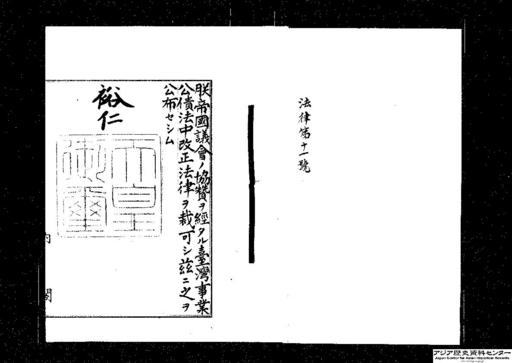 法律第十一號
朕帝國議會ノ協贊ヲ經タル臺灣事業
公債法中改正法律ヲ裁可シ茲ニ之ヲ
公布セシム
裕仁
天皇御璽
内閣
アジア歴史資料センター
Japan Center for Asian Historical Records